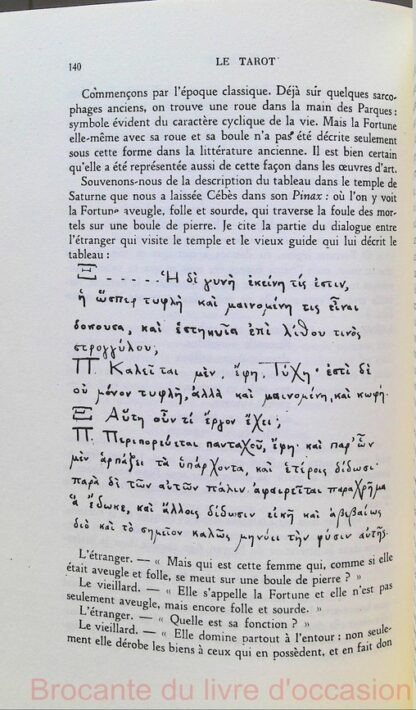 140
LE TAROT
Commençons par l'époque classique. Déjà sur quelques sarco-
phages anciens, on trouve une roue dans la main des Parques :
symbole évident du caractère cyclique de la vie. Mais la Fortune
elle-même avec sa roue et sa boule n'a pas été décrite seulement
sous cette forme dans la littérature ancienne. Il est bien certain
qu'elle a été représentée aussi de cette façon dans les œuvres d'art.
Souvenons-nous de la description du tableau dans le temple de
Saturne que nous a laissée Cébès dans son Pinax : où l'on y voit
la Fortune aveugle, folle et sourde, qui traverse la foule des mor-
tels sur une boule de pierre. Je cite la partie du dialogue entre
l'étranger qui visite le temple et le vieux guide qui lui décrit le
tableau :
Ξ - - - - - Ἡ δὲ γυνὴ ἐκείνη τίς ἐστιν,
ἡ ὥσπερ τυφλὴ καὶ μαινομένη τις εἶναι
δοκουσα, καὶ ἑστηκυῖα ἐπὶ λίθου τινὸς
στρογγύλου;
Π. Καλεῖται μὲν, ἔφη, Τύχη· ἐστὶ δὲ
οὐ μόνον τυφλὴ, ἀλλὰ καὶ μαινομένη, καὶ κωφή.
Ξ Αὕτη οὖν τί ἔργον ἔχει;
Π. Περιπορεύεται πανταχοῦ, ἔφη· καὶ παρ' ὧν
μὲν ἁρπάζει τὰ ὑπάρχοντα, καὶ ἑτέροις δίδωσι·
παρὰ δὲ τῶν αὐτῶν πάλιν ἀφαιρεῖται παραχρῆμα
ἃ ἔδωκε, καὶ ἄλλοις δίδωσιν εἰκῆ καὶ ἀβεβαίως
διὸ καὶ τὸ σημεῖον καλῶς μηνύει τὴν φύσιν αὐτῆς.
L'étranger. — « Mais qui est cette femme qui, comme si elle
était aveugle et folle, se meut sur une boule de pierre ? »
Le vieillard. — « Elle s'appelle la Fortune et elle n'est pas
seulement aveugle, mais encore folle et sourde. »
L'étranger. — « Quelle est sa fonction ? »
Le vieillard. — « Elle domine partout à l'entour : non seule-
ment elle dérobe les biens à ceux qui en possèdent, et en fait don
Brocante du livre d'occasion